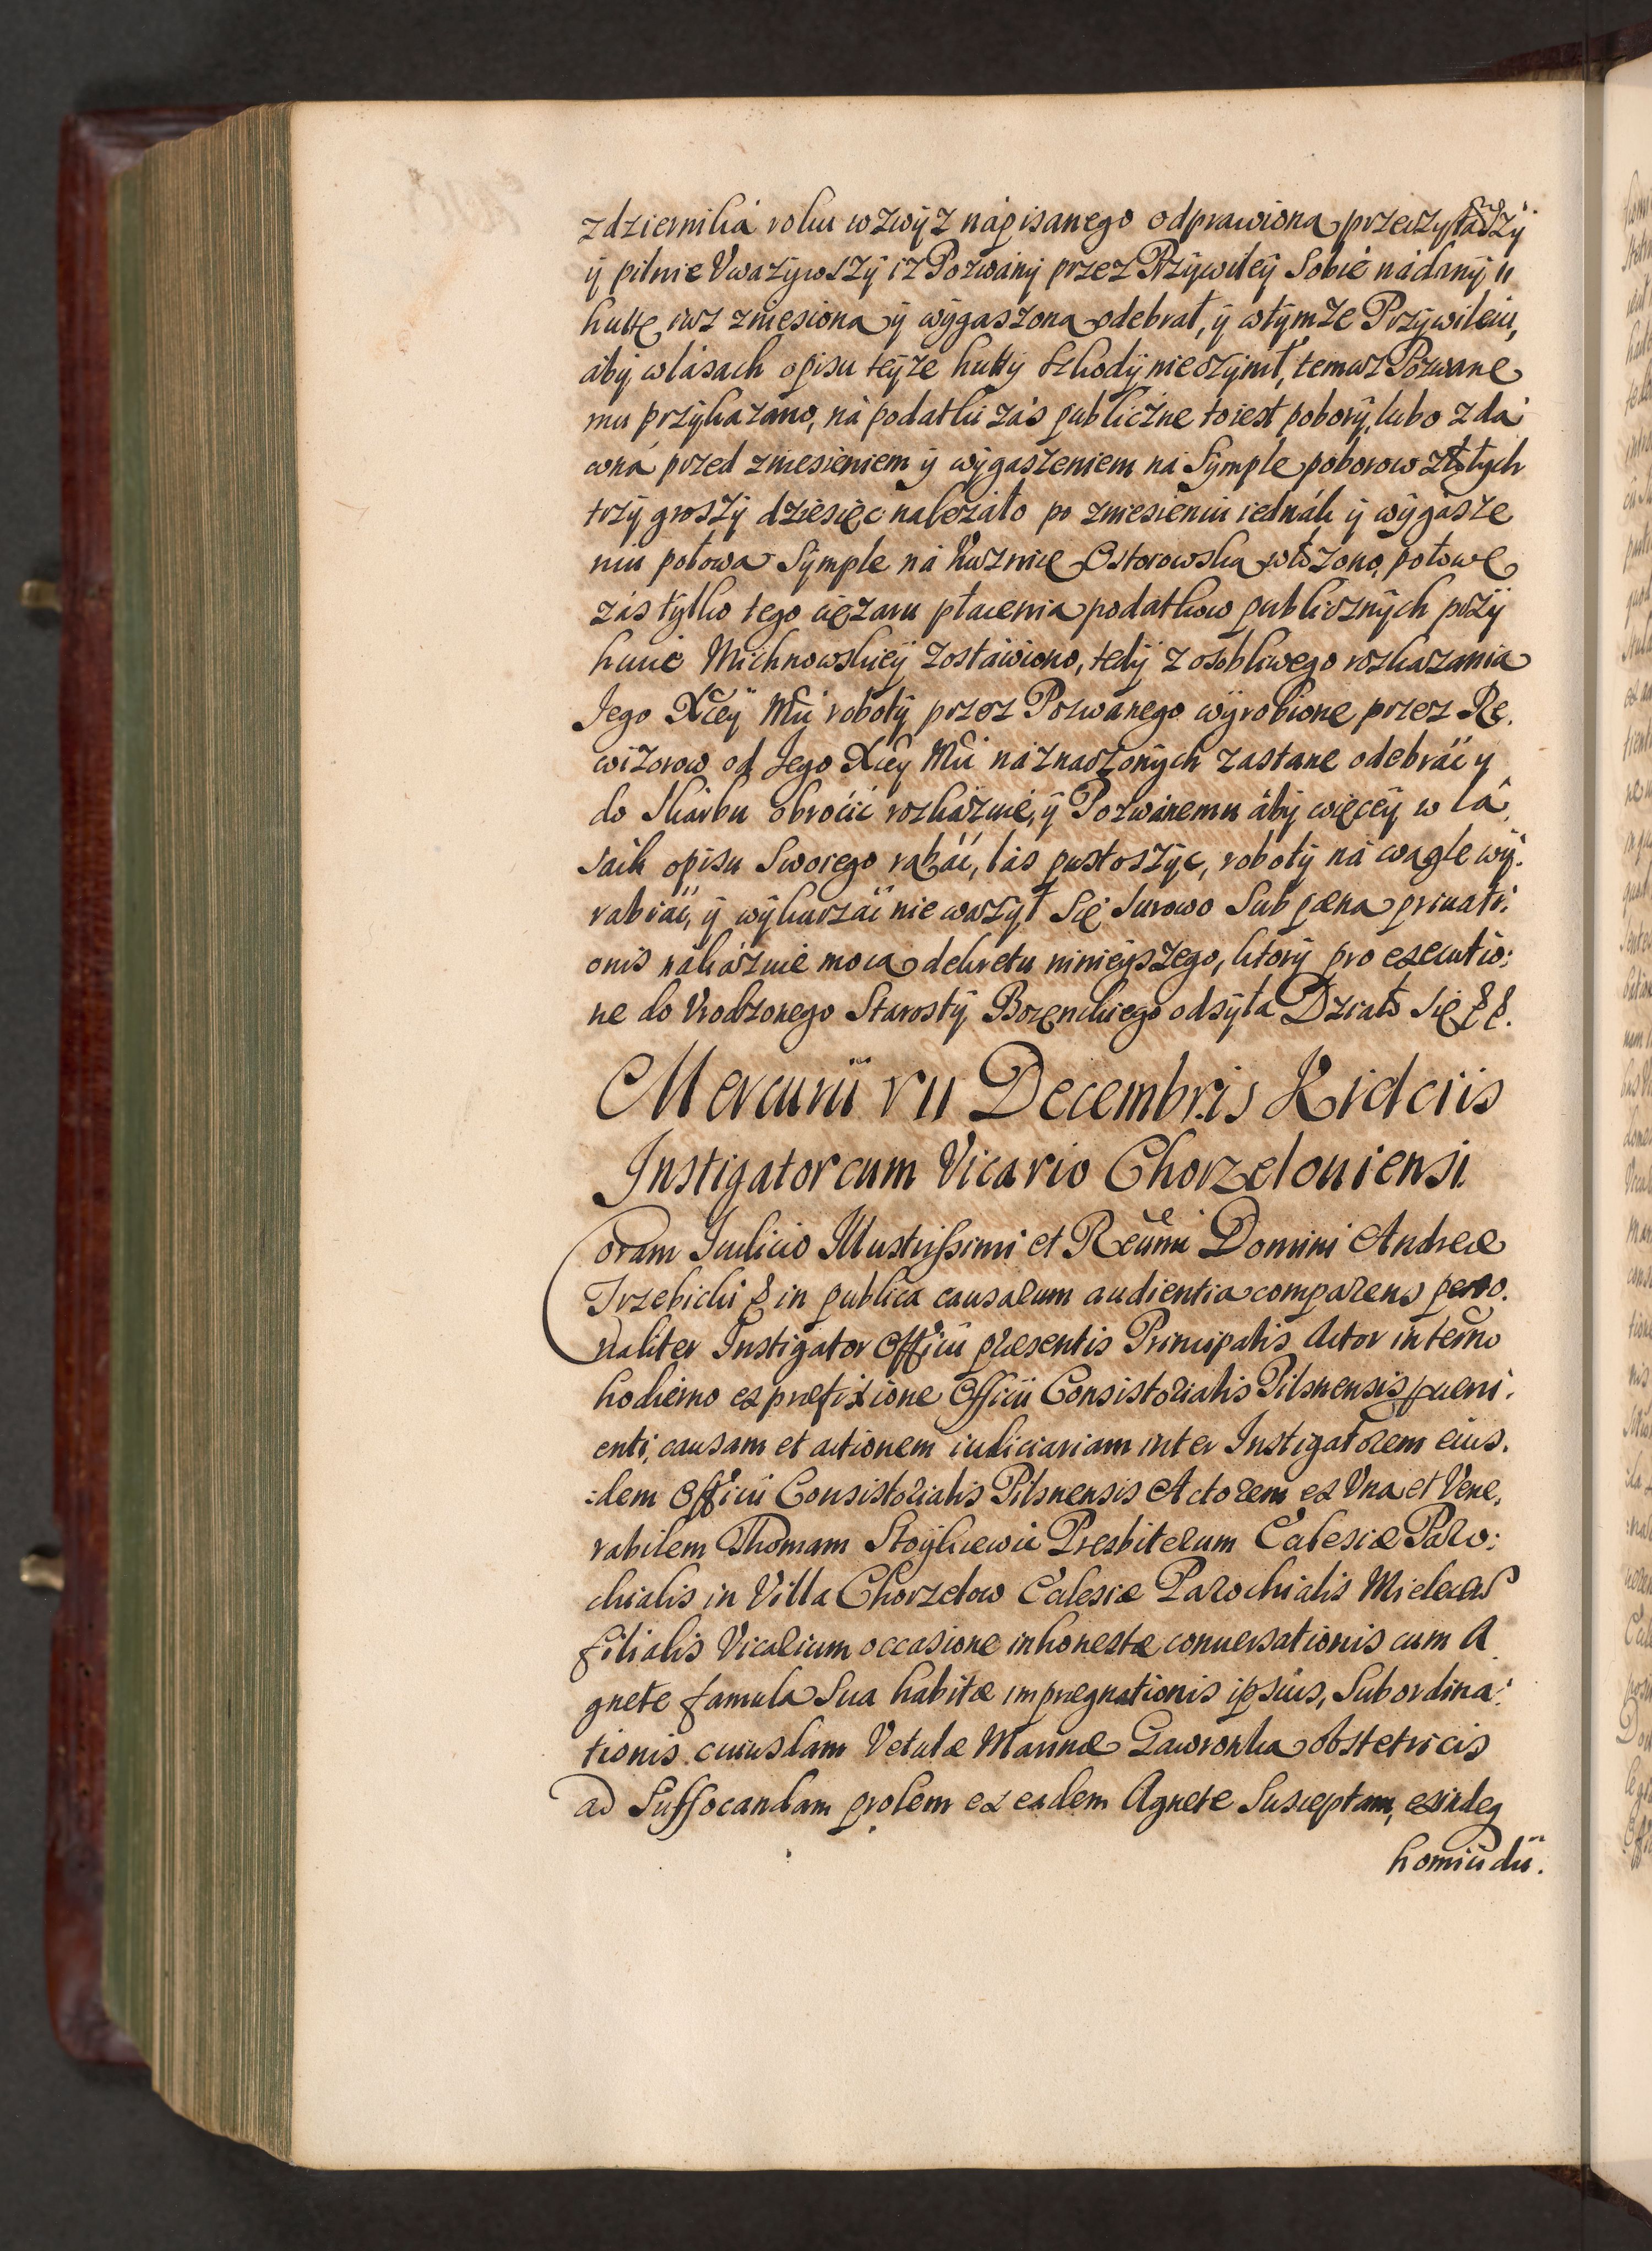 zdziernika roku wzwyz nápisanego odprawiona przeczytawszy
ÿ pilnie Vwazÿwszÿ iz Pozwánÿ przez Przÿwileÿ Sobie nádanÿ
hutte iuz zniesiona ÿ wÿgaszona odebrał, ÿ wtÿmze Przÿwileiu,
ábÿ wlásach opisu teÿze huttÿ szkodÿ nieczÿnił, temuz Pozwane
mu przÿkazano, ná podatki zás publiczne toiest poborÿ, lubo zda
wná przed zniesieniem ÿ wÿgaszeniem ná Sÿmple poborow złotÿch
trzÿ groszÿ dziesięc nalezáło po zniesieniu iednák ÿ wÿgásze
niu połowa Sÿmple ná kuznicę Ostorowska włozono, połowę
zás tÿlko tego ciężaru płacenia podatkow publicznÿch przÿ
hucie Michnowskieÿ zostáwiono, tedÿ z osobliwego rozkazania
Jego Xceÿ Mci robotÿ przez Pozwánego wÿrobione przez Re.
wizorow od Jego Xceÿ Mci náznaczonÿch zastane odebráć ÿ
do Skárbu obrócić rozkázuie, ÿ Pozwánemu ábÿ więceÿ w lá
sách opisu Swoiego rabáć, lás pustoszÿc, robotÿ ná wagle wÿ:
rabiáć, ÿ wÿkurzáć nie wazÿł Się Surowo Sub pæna priuati:
onis nakázuie moca dekretu ninieÿszego, ktorÿ pro executio:
ne do Vrodzonego Starostÿ Bozęckiego odsÿła Działo Się &&.
Mercurii VII Decembris Kielciis
Instigator cum Vicario Chorzelouiensi.
Coram Iudicio Illustrissimi et Rendmi Domini Andreæ
Trzebicki & in publica causarum audientia comparens perso.
naliter Instigator Officii præsentis Principalis Actor in termino
hodierno ex præfixione Officii Consistorialis Pilsnensis pueni:
enti, causam et actionem iudiciariam inter Instigatorem eius.
:dem Officii Consistorialis Pilsnensis Actorem ex Vna et Vene,
rabilem Thomam Stoÿkiewic Presbiterum Ecclesiæ Paro:
chialis in Villa Chorzelow Ecclesiæ Parochialis Mielecen
filialis Vicarium occasione inhonestæ conuersationis cum A
gnete famula Sua habitæ impregnationis ipsius, Subordina:
tionis cuiusdam Vetulæ Marinæ Gawronka obstetricis
ad Suffocandam prolem ex eadem Agnete Susceptam, exindeq
homicidii.